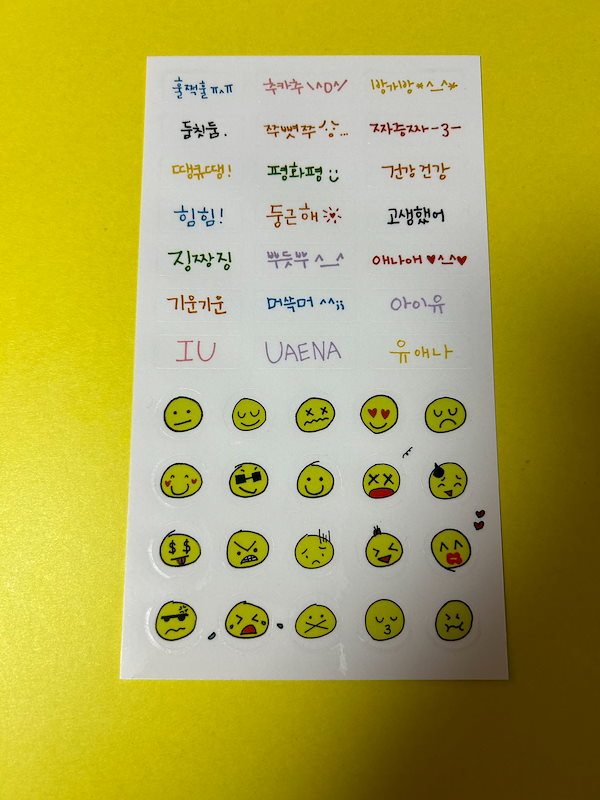 훌쩍훌 ㅠㅅㅠ 추카추 \^O^/ 방가방 *^_^*
둠칫둠. 쭈뼛쭈 ^;^... 짜증짜 -3-
땡큐땡! 평화평 :) 건강건강
힘힘! 둥근해 고생했어
징짱징 뿌듯뿌 ^_^ 애나애 ♥^_^♥
기운기운 머쓱머 ^^;; 아이유
IU UAENA 유애나